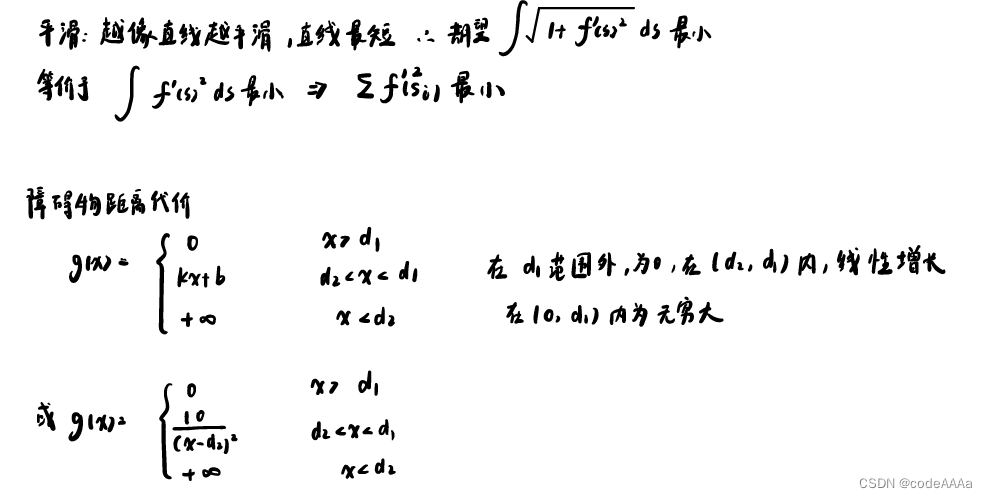 平滑：越像直线越平滑，直线最短 ∴ 期望 ∫√(1+f'(s)²) ds 最小
等价于 ∫ f'(s)² ds 最小 ⇒ Σ f'²(sᵢ) 最小
障碍物距离代价
g(x) = { 0 x > d₁
kx+b d₂<x<d₁ 在 d₁ 范围外，为0，在 (d₂, d₁) 内，线性增长
+∞ x<d₂ 在 (0, d₁) 内为无穷大
或 g(x)= { 0 x > d₁
10/(x-d₂)² d₂<x<d₁
+∞ x<d₂
CSDN @codeAAAa